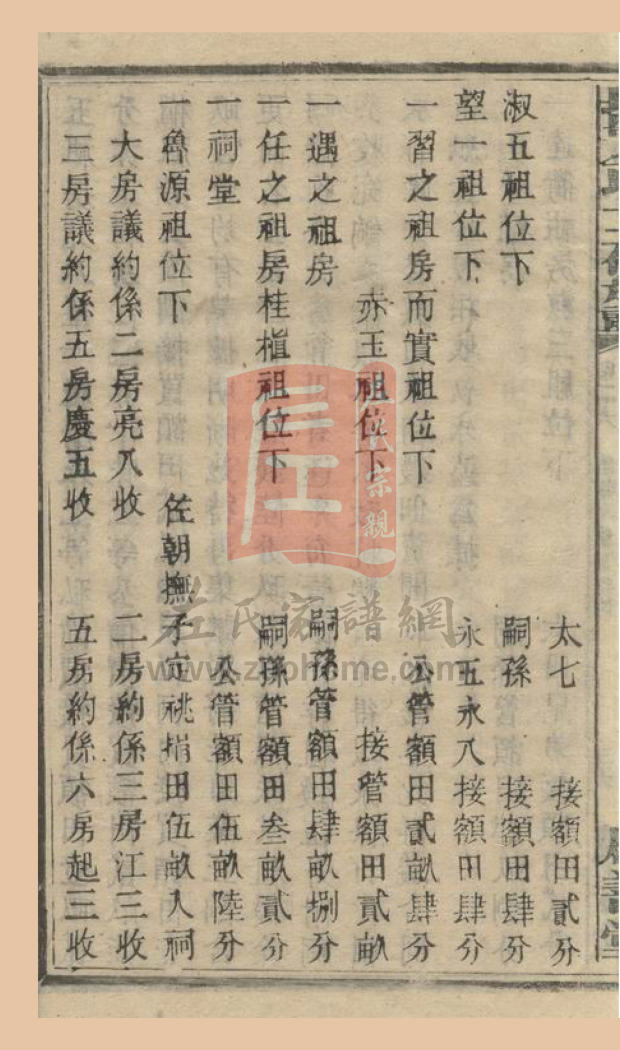 太七　接額田貳分
淑五祖位下　嗣孫　接額田肆分
望一祖位下　永五永八接額田肆分
一習之祖房而實祖位下　公管額田貳畝肆分
亦玉祖位下　接管額田貳畝
一遇之祖房　嗣孫管額田肆畝捌分
一任之祖房桂植祖位下　嗣孫管額田叁畝貳分
一祠堂　公管額田伍畝陸分
一魯源祖位下　佐朝撫子定祧捐田伍畝入祠
大房議約係二房亮八收　二房約係三房江三收
三房議約係五房慶五收　五房約係六房起三收
莊氏宗親
莊氏家譜網